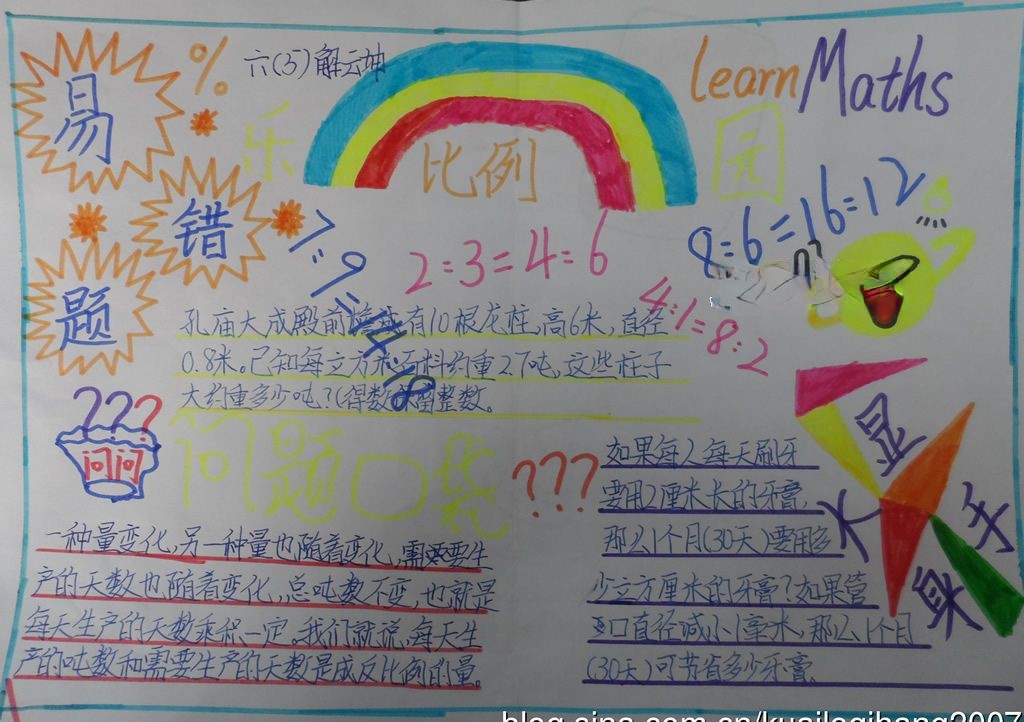 易
错
题
%
六(5)解云坤
乐
比例
园
learn Maths
7:9=14:18
2:3=4:6
8:6=16:12
4:1=8:2
孔庙大成殿前檐有10根龙柱,高6米,直径
0.8米。已知每立方米石料约重2.7吨,这些柱子
大约重多少吨?(得数保留整数。
???
问问
问题口袋
一种量变化,另一种量也随着变化,需要要生
产的天数也随着变化,总吨数不变,也就是
每天生产的天数乘积一定。我们就说,每天生
产的吨数和需要生产的天数是成反比例的量。
???
如果每人每天刷牙
要用2厘米长的牙膏,
那么1个月(30天)要用多
少立方厘米的牙膏?如果管
口直径减小1毫米,那么1个月
(30天)可节省多少牙膏.
大
显
身
手
blog.sina.com.cn/kuaileqihang2007